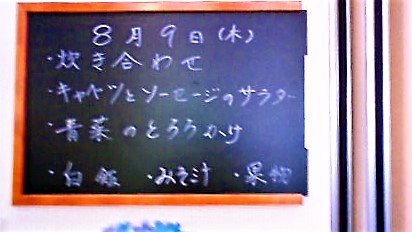 8月9日(木)
・炊き合わせ
・キャベツとソーセージのサラダー
・青菜のとろろかけ
・白飯 ・みそ汁 ・果物